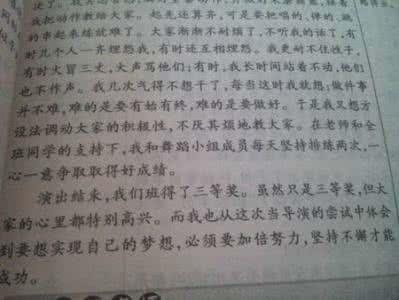 我把动作教给大家。起先还算齐,可是要把唱的、弹的、跳
的串起来练就难了。大家渐渐不耐烦了,不听我的话了,有
时几个人一齐埋怨我,有时还互相埋怨。我更耐不住性子,
有时大冒三丈,大声骂他们;有时,我长时间站着不动,他们
也不作声。我几次气得不想干了,每当这时我就想:做件事
并不难,难的是要有始有终,难的是要做好。于是我又想方
设法调动大家的积极性,不厌其烦地教大家。在老师和全
班同学的支持下,我和舞蹈小组成员每天坚持排练两次,一
心一意争取取得好成绩。
演出结束,我们班得了三等奖。虽然只是三等奖,但大
家的心里都特别高兴。而我也从这次当导演的尝试中体会
到要想实现自己的梦想,必须要加倍努力,坚持不懈才能
成功。